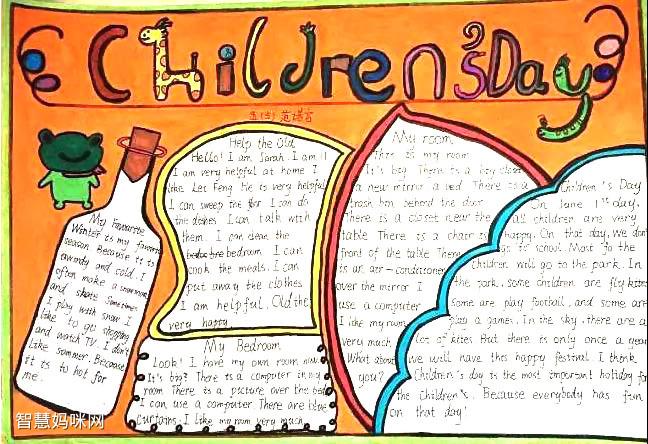 Children's Day
My Favourite
Winter is my favorite
season. Because it is
windy and cold. I
often make a snowman
and skate. Sometimes
I play with snow I
like to go shopping
and watch TV. I don't
like summer. Because
it is to hot for
me.
Help the Old
Hello! I am Sarah. I am 11
I am very helpful at home I
like Lei Feng. He is very helpful
I can sweep the floor I can do
the dishes I can talk with
them. I can clean the
bedroom. I can
cook the meals. I can
put away the clothes
I am helpful. Old the
very happy
My Bedroom
Look! I have my own room now.
It's big? There is a computer in my
room There is a picture over the bed
I can use a computer There are blue
curtains. I like my room very much
My room
This is my room
It's big There is a boy closet
a new mirror a bed There is a
trash bin behend the door
There is a closet near the
table There is a chair is
front of the table There
is an air-conditioner
over the mirror I
use a computer
I like my room
very much
What about
you?
Children's Day
On June 1st day.
all children are very
happy. On that day, We don't
go to school. Most fo the
Children will go to the park. In
the park, some children are fly kites
Some are play football, and some are
play a games. In the sky, there are a
lot of kites But there is only once a year
we will have this happy festival. I think
Children's day is the most important holiday for
the Children. Because everybody has fun
on that day!
智慧妈咪网